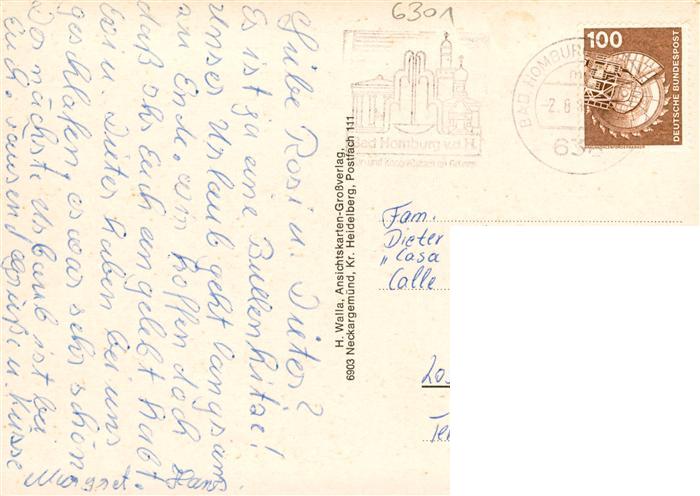 6301
Liebe Rosi u. Dieter?
Es ist ja eine Bullenhitze!
Unser Urlaub geht langsam
zu Ende, wir hoffen doch
daß Ihr Euch eingelebt habt.
Evi u. Dieter haben bei uns
geschlafen, es war sehr schön
Der nächste Urlaub ist bei
Euch. Tausend Grüße u. Küsse
Margret Hans
H. Walla, Ansichtskarten-Großverlag,
6903 Neckargemünd, Kr. Heidelberg, Postfach 111
Bad Homburg v.d.H.
BAD HOMBURG
-2.6.8
638
100
DEUTSCHE BUNDESPOST
Fam.
Dieter
„Casa
Calle
Los
Te